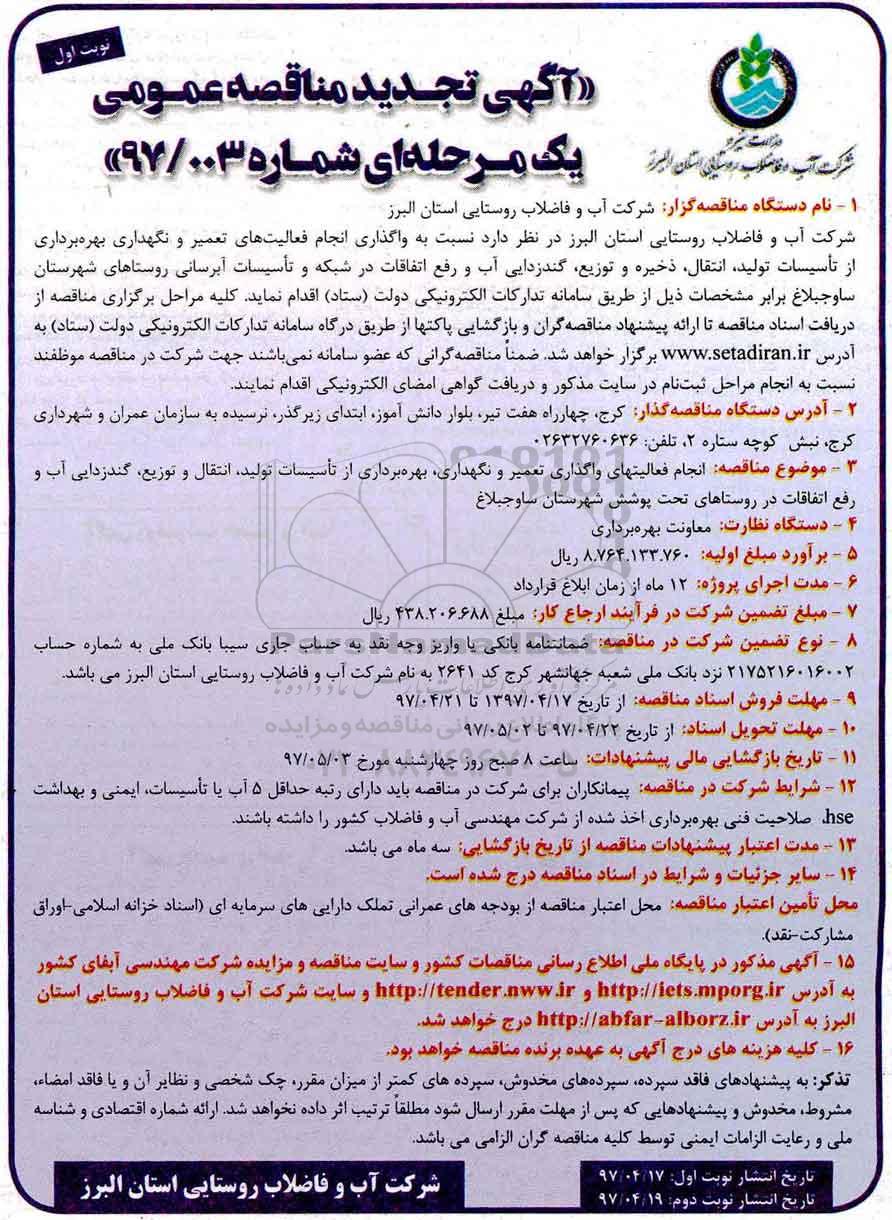 نوبت اول
«آگهی تجدید مناقصه عمومی
یک مرحله‌ای شماره ۹۷/۰۰۳»
وزارت نیرو
شرکت آب و فاضلاب روستایی استان البرز
۱ - نام دستگاه مناقصه‌گزار: شرکت آب و فاضلاب روستایی استان البرز
شرکت آب و فاضلاب روستایی استان البرز در نظر دارد نسبت به واگذاری انجام فعالیت‌های تعمیر و نگهداری بهره‌برداری
از تأسیسات تولید، انتقال، ذخیره و توزیع، گندزدایی آب و رفع اتفاقات در شبکه و تأسیسات آبرسانی روستاهای شهرستان
ساوجبلاغ برابر مشخصات ذیل از طریق سامانه تدارکات الکترونیکی دولت (ستاد) اقدام نماید. کلیه مراحل برگزاری مناقصه از
دریافت اسناد مناقصه تا ارائه پیشنهاد مناقصه‌گران و بازگشایی پاکتها از طریق درگاه سامانه تدارکات الکترونیکی دولت (ستاد) به
آدرس www.setadiran.ir برگزار خواهد شد. ضمناً مناقصه‌گرانی که عضو سامانه نمی‌باشند جهت شرکت در مناقصه موظفند
نسبت به انجام مراحل ثبت‌نام در سایت مذکور و دریافت گواهی امضای الکترونیکی اقدام نمایند.
۲ - آدرس دستگاه مناقصه‌گذار: کرج، چهارراه هفت تیر، بلوار دانش آموز، ابتدای زیرگذر، نرسیده به سازمان عمران و شهرداری
کرج، نبش کوچه ستاره ۲، تلفن: ۰۲۶۳۲۷۶۰۶۳۶
۳ - موضوع مناقصه: انجام فعالیتهای واگذاری تعمیر و نگهداری، بهره‌برداری از تأسیسات تولید، انتقال و توزیع، گندزدایی آب و
رفع اتفاقات در روستاهای تحت پوشش شهرستان ساوجبلاغ
۴ - دستگاه نظارت: معاونت بهره‌برداری
۵ - برآورد مبلغ اولیه: ۸.۷۶۴.۱۳۳.۷۶۰ ریال
۶ - مدت اجرای پروژه: ۱۲ ماه از زمان ابلاغ قرارداد
۷ - مبلغ تضمین شرکت در فرآیند ارجاع کار: مبلغ ۴۳۸.۲۰۶.۶۸۸ ریال
۸ - نوع تضمین شرکت در مناقصه: ضمانتنامه بانکی یا واریز وجه نقد به حساب جاری سیبا بانک ملی به شماره حساب
۲۱۷۵۲۱۶۰۱۶۰۰۲ نزد بانک ملی شعبه جهانشهر کرج کد ۲۶۴۱ به نام شرکت آب و فاضلاب روستایی استان البرز می باشد.
۹ - مهلت فروش اسناد مناقصه: از تاریخ ۱۳۹۷/۰۴/۱۷ تا ۹۷/۰۴/۲۱
۱۰ - مهلت تحویل اسناد: از تاریخ ۹۷/۰۴/۲۲ تا ۹۷/۰۵/۰۲
۱۱ - تاریخ بازگشایی مالی پیشنهادات: ساعت ۸ صبح روز چهارشنبه مورخ ۹۷/۰۵/۰۳
۱۲ - شرایط شرکت در مناقصه: پیمانکاران برای شرکت در مناقصه باید دارای رتبه حداقل ۵ آب یا تأسیسات، ایمنی و بهداشت
hse، صلاحیت فنی بهره‌برداری اخذ شده از شرکت مهندسی آب و فاضلاب کشور را داشته باشند.
۱۳ - مدت اعتبار پیشنهادات مناقصه از تاریخ بازگشایی: سه ماه می باشد.
۱۴ - سایر جزئیات و شرایط در اسناد مناقصه درج شده است.
محل تأمین اعتبار مناقصه: محل اعتبار مناقصه از بودجه های عمرانی تملک دارایی های سرمایه ای (اسناد خزانه اسلامی-اوراق
مشارکت-نقد).
۱۵ - آگهی مذکور در پایگاه ملی اطلاع رسانی مناقصات کشور و سایت مناقصه و مزایده شرکت مهندسی آبفای کشور
به آدرس http://iets.mporg.ir و http://tender.nww.ir و سایت شرکت آب و فاضلاب روستایی استان
البرز به آدرس http://abfar-alborz.ir درج خواهد شد.
۱۶ - کلیه هزینه های درج آگهی به عهده برنده مناقصه خواهد بود.
تذکر: به پیشنهادهای فاقد سپرده، سپرده‌های مخدوش، سپرده های کمتر از میزان مقرر، چک شخصی و نظایر آن و یا فاقد امضاء،
مشروط، مخدوش و پیشنهادهایی که پس از مهلت مقرر ارسال شود مطلقاً ترتیب اثر داده نخواهد شد. ارائه شماره اقتصادی و شناسه
ملی و رعایت الزامات ایمنی توسط کلیه مناقصه گران الزامی می باشد.
تاریخ انتشار نوبت اول: ۹۷/۰۴/۱۷
تاریخ انتشار نوبت دوم: ۹۷/۰۴/۱۹
شرکت آب و فاضلاب روستایی استان البرز
ParsNamadData
پایگاه اطلاع رسانی مناقصه و مزایده
۰۲۱-۸۸۳۴۹۶۷۰-۵